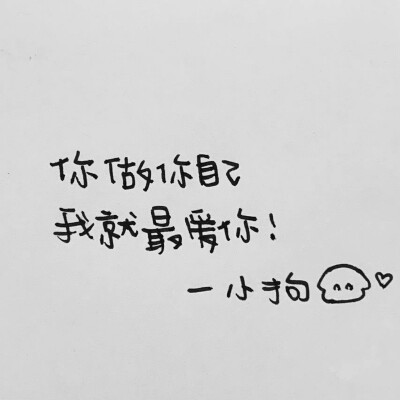 你做你自己
我就最爱你!
一小狗